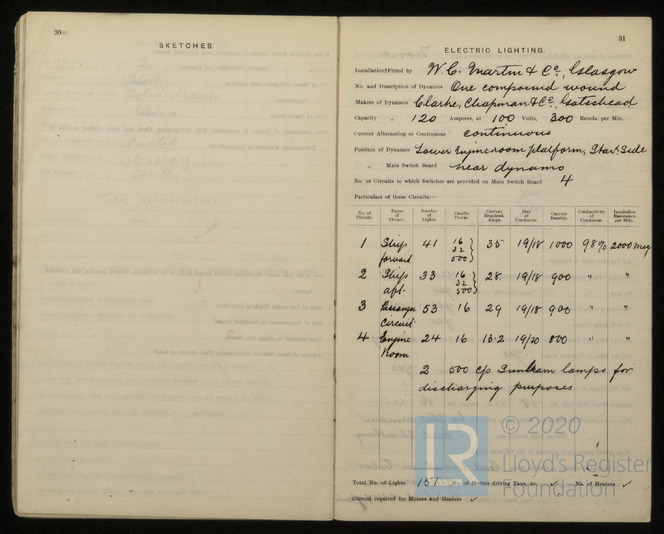 30
SKETCHES.
31
ELECTRIC LIGHTING.
Installation Fitted by W. C. Martin & Co, Glasgow
No. and Description of Dynamos One compound wound
Makers of Dynamos Clarke, Chapman & Co, Gateshead
Capacity „ 120 Amperes, at 100 Volts, 300 Revols. per Min.
Current Alternating or Continuous continuous
Position of Dynamos Lower Engineroom platform, Star. Side
„ Main Switch Board near dynamo
No. of Circuits to which Switches are provided on Main Switch Board 4
Particulars of these Circuits:—
No. of Circuit. Name of Circuit. Number of Lights. Candle Power. Current Required. Amps. Size of Conductor. Current Density. Conductivity of Conductor. Insulation Resistance per Mile.
1 Ships forward 41 16 32 500 } 35 19/18 1000 98% 2000 meg
2 Ships aft 33 16 32 500 } 28 19/18 900 „ „
3 Passenger Circuit 53 16 29 19/18 900 „ „
4 Engine Room 24 16 13.2 19/20 800 „ „
2 500 c/p lamps for
discharging purposes
Total No. of Lights 151 No. of Motors driving Fans, &c. ✓ No. of Heaters ✓
Current required for Motors and Heaters ✓
LR
© 2020
Lloyd's Register
Foundation